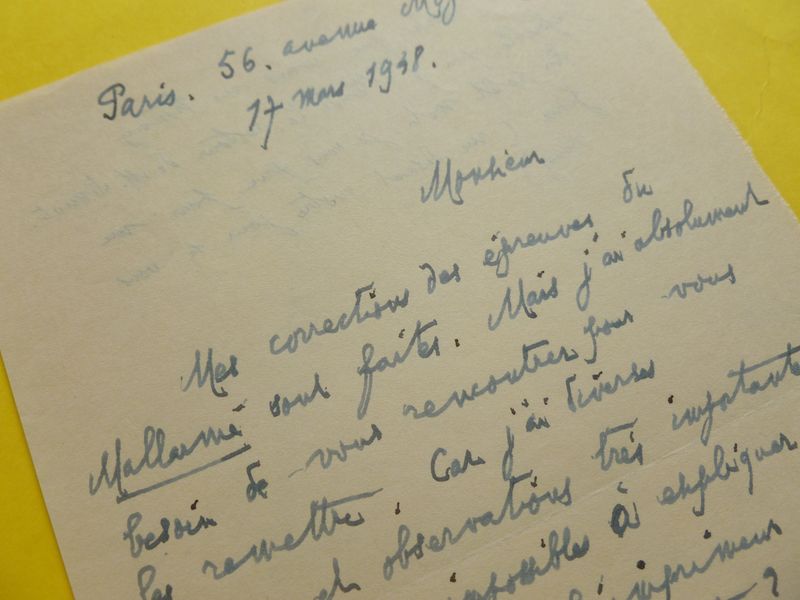 Paris. 56. avenue
17 mars 1948.
Monsieur
Mes corrections des épreuves du
Mallarmé sont faites. Mais j'ai absolument
besoin de vous rencontrer pour vous
les remettre. Car j'ai diverses
et observations très importantes
impossibles à expliquer
imprimeur
?